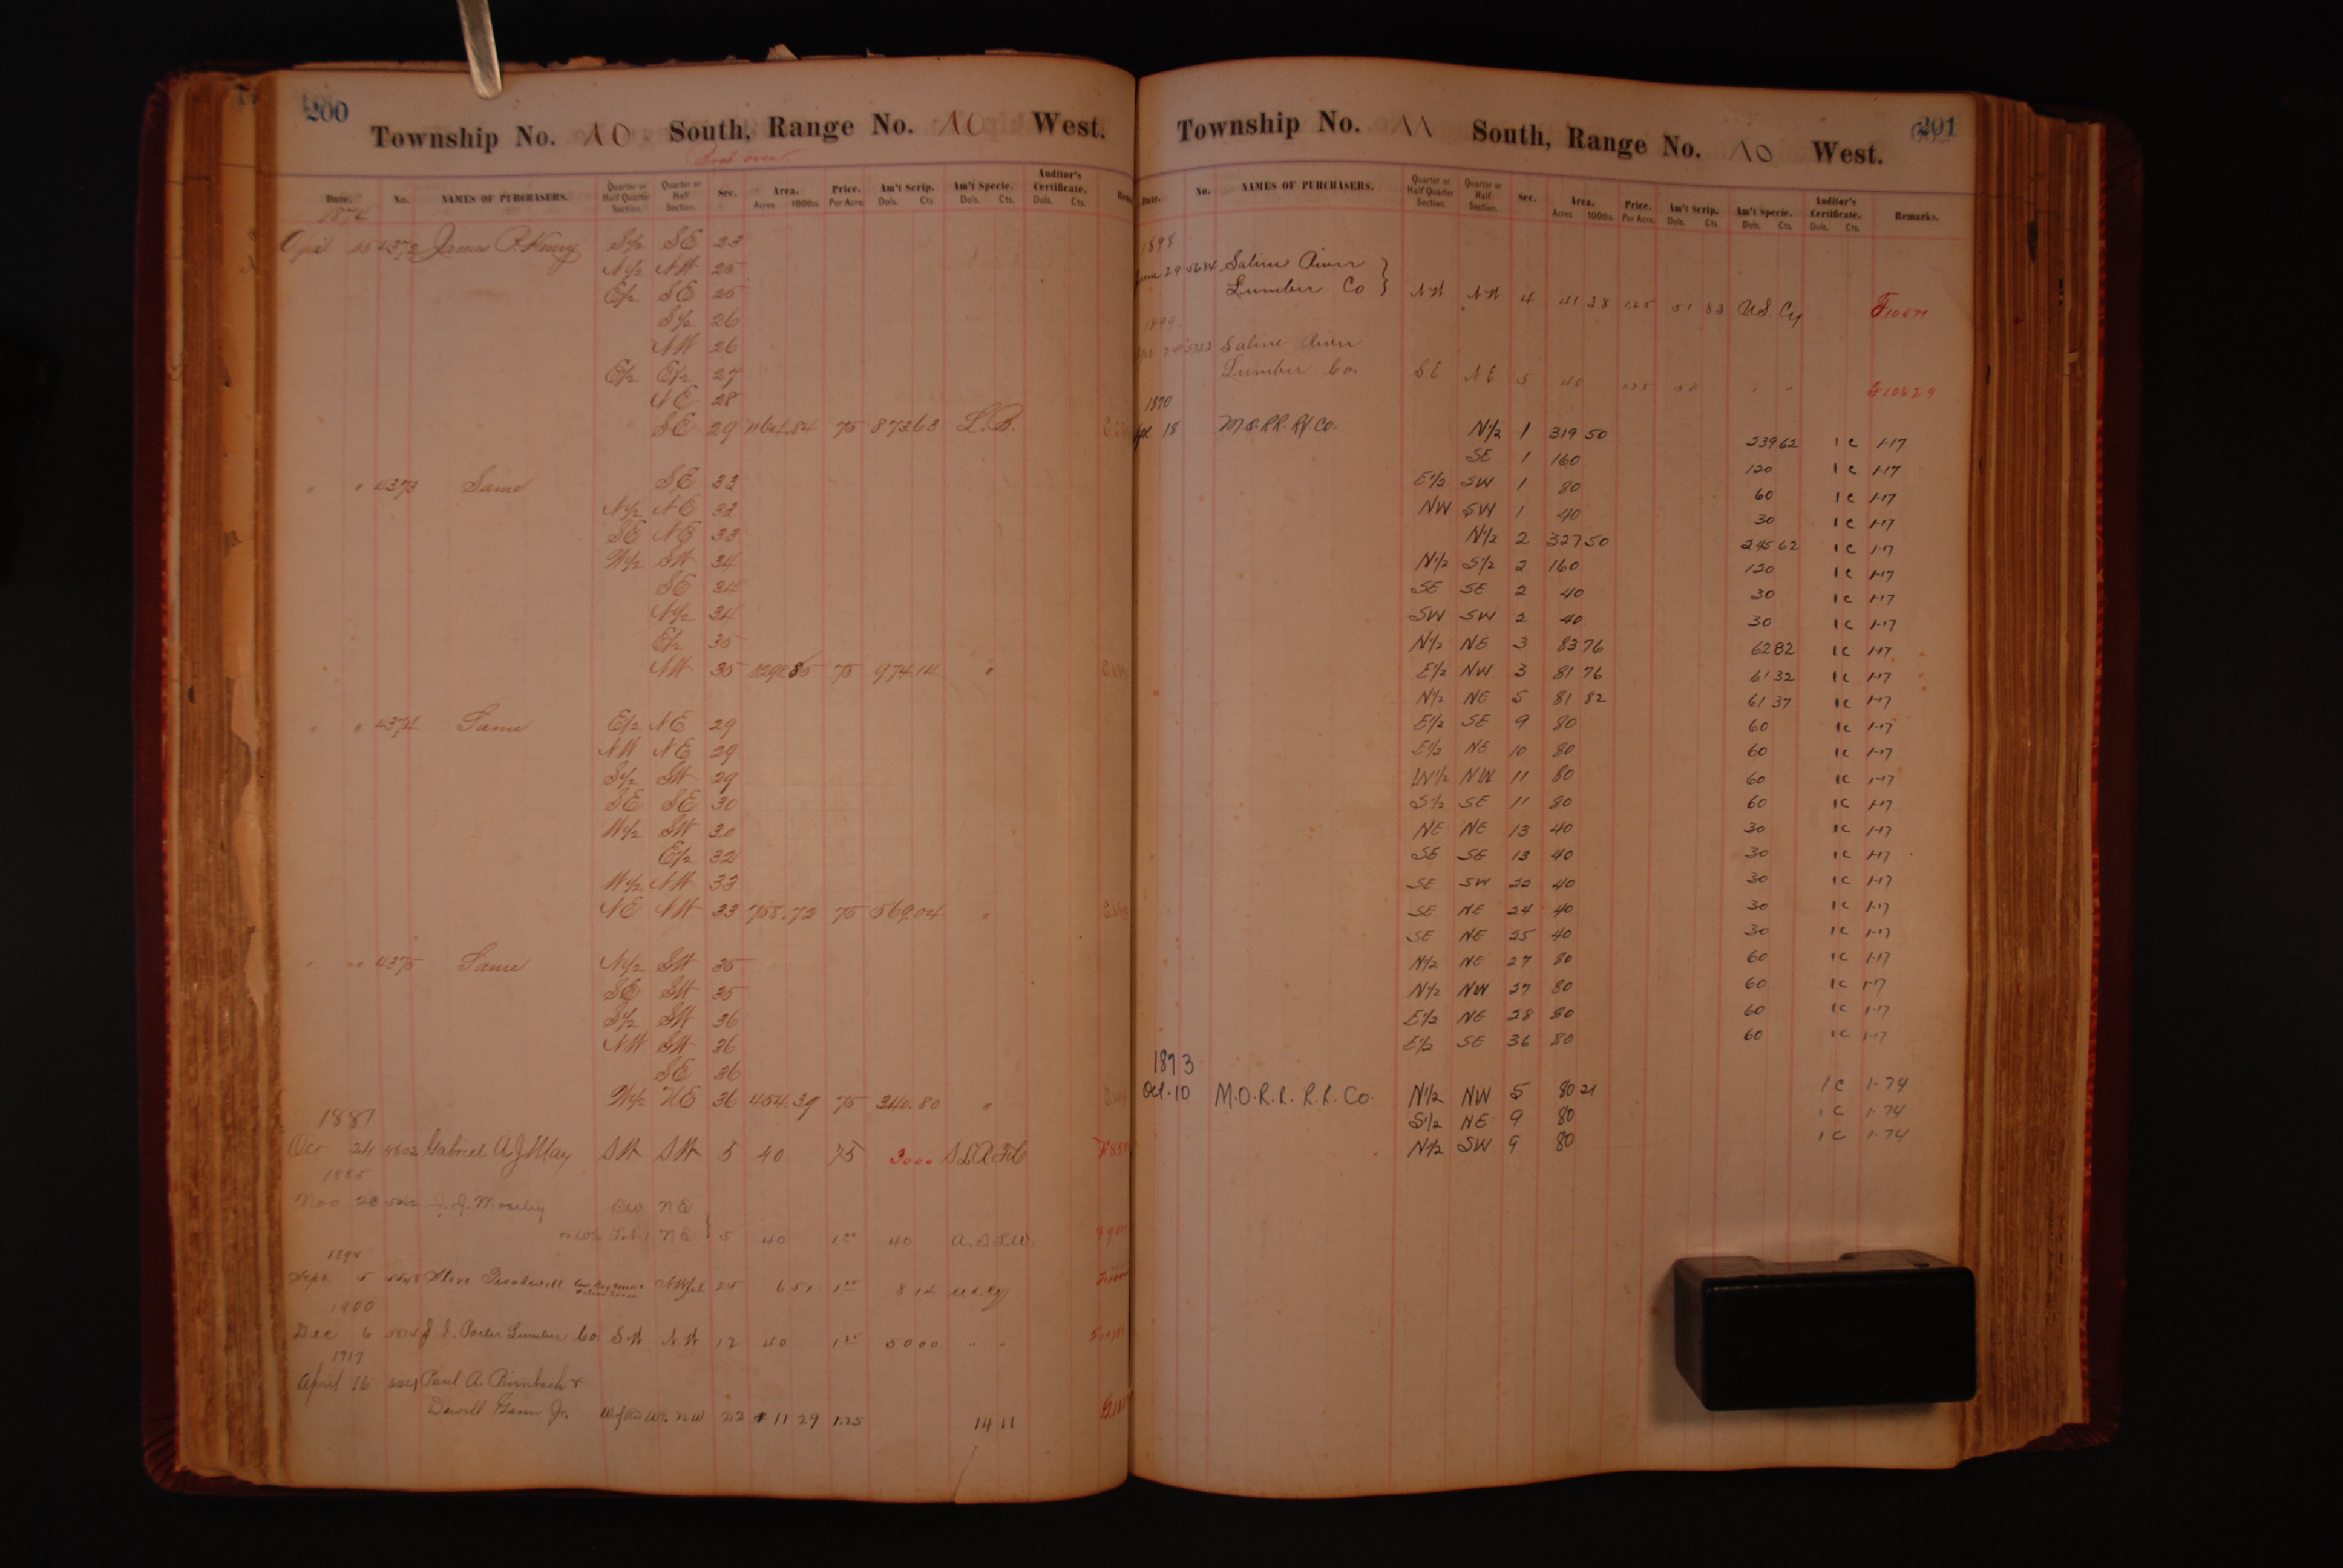 200
Township No. 10 South, Range No. 10 West.
Date. No. NAMES OF PURCHASERS. Quarter or Half Quarter Section. Quarter or Half Section. Sec. Area. Acres 100ths. Price. Per Acre. Am't Scrip. Dols. Cts Am't Specie. Dols. Cts. Auditor's Certificate. Dols. Cts.
1874
April 15 4372 James P. S½ SE 23
N½ NW 25
E½ SE 25
S½ 26
NW 26
E½ E½ 27
NE 28
SE 29 1164.84 75 873.63 L.B.
" " 4373 Same SE 33
N½ NE 33
SE NE 33
W½ SW 34
SE 34
N½ 34
E½ 35
NW 35 85 75 974.14 "
" " 4374 Same E½ NE 29
NW NE 29
S½ SW 29
SE SE 30
W½ SW 30
E½ 32
W½ NW 33
NE NW 33 758.72 75 569.04 "
" " 4375 Same N½ SW 35
SE SW 35
S½ SW 36
NW SW 36
SE 36
W½ NE 36 454.39 75 340.80 "
1881
Oct 24 4802 Gabriel A. J. May SW SW 5 40 75 3000
1885
Nov 28 J. J. Moseley NE
NE 5 40 1 00 40
1898
Sept 5 Steve 25 6 51 1 25 8 14 US. Cy
1900
Dec 6 J. S. Porter Lumber Co SW NW 12 40 1 25 50 00 " "
1917
April 16 Paul A. Birnbach &
Dewell Gann Jr. NW 22 11 29 1.25 14 11
201
Township No. 11 South, Range No. 10 West.
Date. No. NAMES OF PURCHASERS. Quarter or Half Quarter Section. Quarter or Half Section. Sec. Area. Acres 100ths. Price. Per Acre. Am't Scrip. Dols. Cts Am't Specie. Dols. Cts. Auditor's Certificate. Dols. Cts. Remarks.
1898
June 29 5634 Saline River
Lumber Co } NW NW 4 41 38 1.25 51 83 U.S. Cy
1899
Saline River
Lumber Co. SE NE 5 40 1.25 50 " " F10629
1870
18 M.O.RR.R.Co. N½ 1 319 50 239 62 1 C 1-17
SE 1 160 120 1 C 1-17
E½ SW 1 80 60 1 C 1-17
NW SW 1 40 30 1 C 1-17
N½ 2 327 50 245 62 1 C 1-17
N½ S½ 2 160 120 1 C 1-17
SE SE 2 40 30 1 C 1-17
SW SW 2 40 30 1 C 1-17
N½ NE 3 83 76 62 82 1 C 1-17
E½ NW 3 81 76 61 32 1 C 1-17
N½ NE 5 81 82 61 37 1 C 1-17
E½ SE 9 80 60 1 C 1-17
E½ NE 10 80 60 1 C 1-17
W½ NW 11 80 60 1 C 1-17
S½ SE 11 80 60 1 C 1-17
NE NE 13 40 30 1 C 1-17
SE SE 13 40 30 1 C 1-17
SE SW 22 40 30 1 C 1-17
SE NE 24 40 30 1 C 1-17
SE NE 25 40 30 1 C 1-17
N½ NE 27 80 60 1 C 1-17
N½ NW 27 80 60 1 C 1-17
E½ NE 28 80 60 1 C 1-17
E½ SE 36 80 60 1 C 1-17
1873
Oct. 10 M.O.R.R. R.R. Co. N½ NW 5 80 21 1 C 1-74
S½ NE 9 80 1 C 1-74
N½ SW 9 80 1 C 1-74